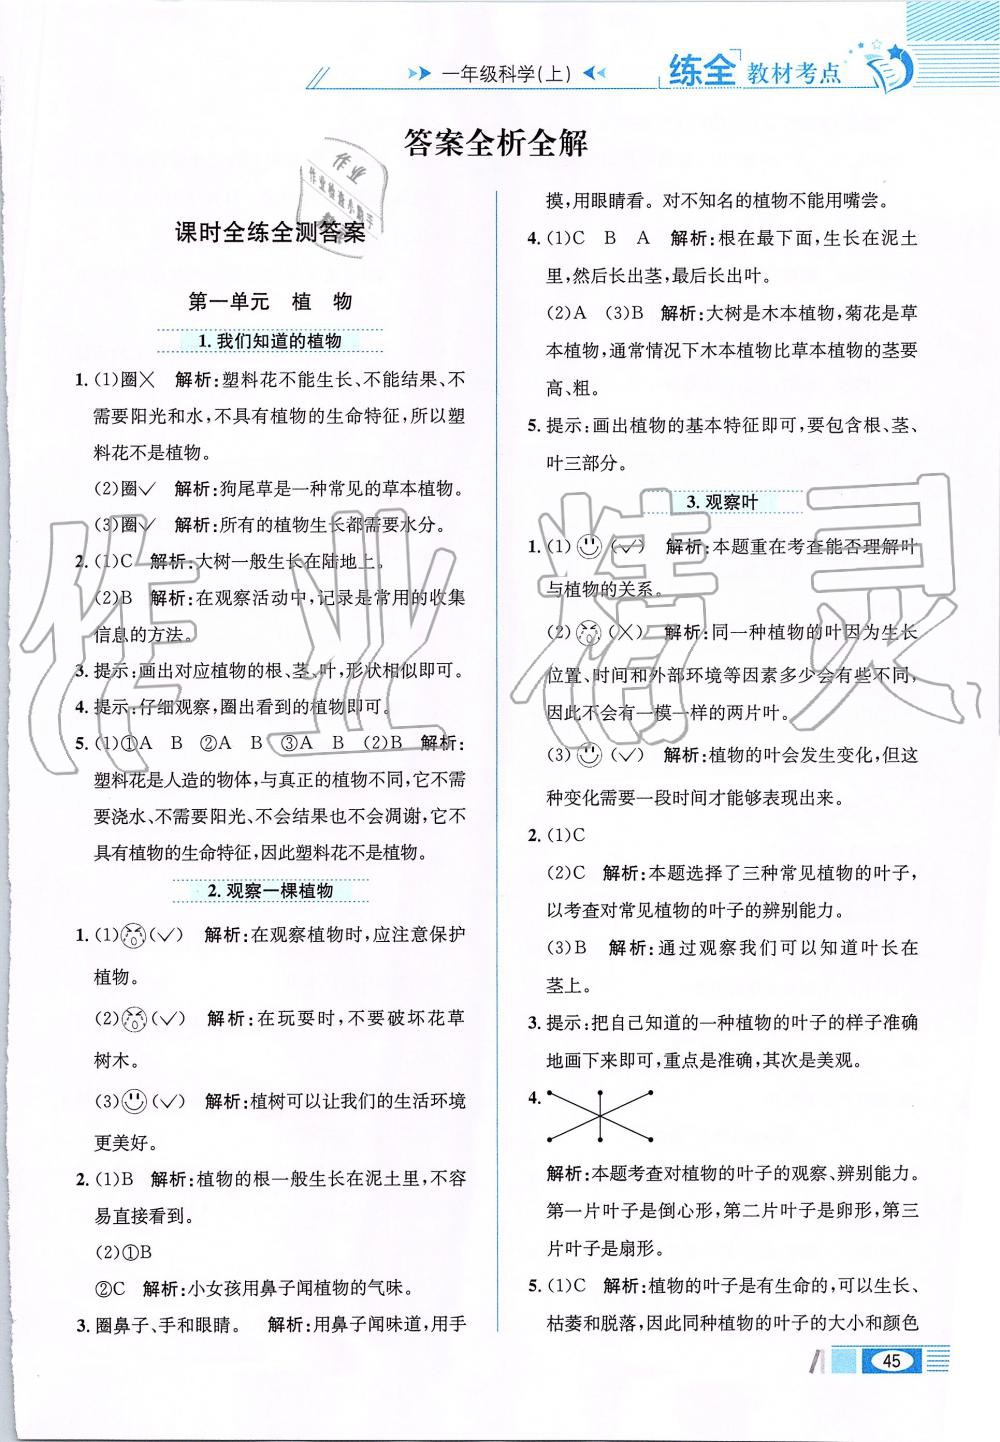 一年级科学(上)
练全教材考点
答案全析全解
课时全练全测答案
第一单元 植 物
1. 我们知道的植物
1. (1)圈✕ 解析:塑料花不能生长、不能结果、不
需要阳光和水,不具有植物的生命特征,所以塑
料花不是植物。
(2)圈✓ 解析:狗尾草是一种常见的草本植物。
(3)圈✓ 解析:所有的植物生长都需要水分。
2. (1)C 解析:大树一般生长在陆地上。
(2)B 解析:在观察活动中,记录是常用的收集
信息的方法。
3. 提示:画出对应植物的根、茎、叶,形状相似即可。
4. 提示:仔细观察,圈出看到的植物即可。
5. (1)①A B ②A B ③A B (2)B 解析:
塑料花是人造的物体,与真正的植物不同,它不需
要浇水、不需要阳光、不会结果也不会凋谢,它不
具有植物的生命特征,因此塑料花不是植物。
2. 观察一棵植物
1. (1) (✓) 解析:在观察植物时,应注意保护
植物。
(2) (✓) 解析:在玩耍时,不要破坏花草
树木。
(3) (✓) 解析:植树可以让我们的生活环境
更美好。
2. (1)B 解析:植物的根一般生长在泥土里,不容
易直接看到。
(2)①B
②C 解析:小女孩用鼻子闻植物的气味。
3. 圈鼻子、手和眼睛。 解析:用鼻子闻味道,用手
摸,用眼睛看。对不知名的植物不能用嘴尝。
4. (1)C B A 解析:根在最下面,生长在泥土
里,然后长出茎,最后长出叶。
(2)A (3)B 解析:大树是木本植物,菊花是草
本植物,通常情况下木本植物比草本植物的茎要
高、粗。
5. 提示:画出植物的基本特征即可,要包含根、茎、
叶三部分。
3. 观察叶
1. (1) (✓) 解析:本题重在考查能否理解叶
与植物的关系。
(2) (✕) 解析:同一种植物的叶因为生长
位置、时间和外部环境等因素多少会有些不同,
因此不会有一模一样的两片叶。
(3) (✓) 解析:植物的叶会发生变化,但这
种变化需要一段时间才能够表现出来。
2. (1)C
(2)C 解析:本题选择了三种常见植物的叶子,
以考查对常见植物的叶子的辨别能力。
(3)B 解析:通过观察我们可以知道叶长在
茎上。
3. 提示:把自己知道的一种植物的叶子的样子准确
地画下来即可,重点是准确,其次是美观。
4.
解析:本题考查对植物的叶子的观察、辨别能力。
第一片叶子是倒心形,第二片叶子是卵形,第三
片叶子是扇形。
5. (1)C 解析:植物的叶子是有生命的,可以生长、
枯萎和脱落,因此同种植物的叶子的大小和颜色
45
作业精灵
作业
作业检查小助手